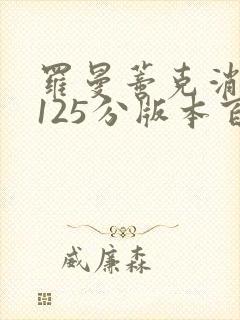 羅曼蒂克消
125分版本百
威廉森